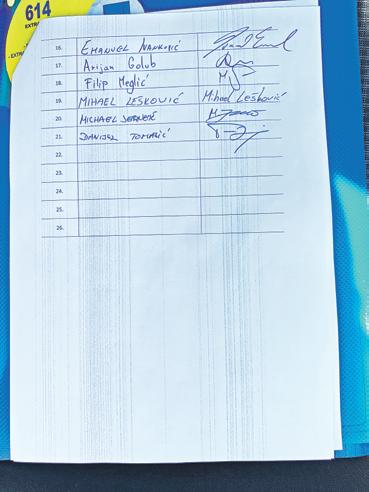 614
EXTRA
16. EMANUEL IVANKOVIĆ
17. Arijan Golub
18. Filip Meglić
19. MIHAEL LESKOVIĆ Mihael Lesković
20. MICHAEL
21. DANIJEL TOMAŠIĆ
22.
23.
24.
25.
26.